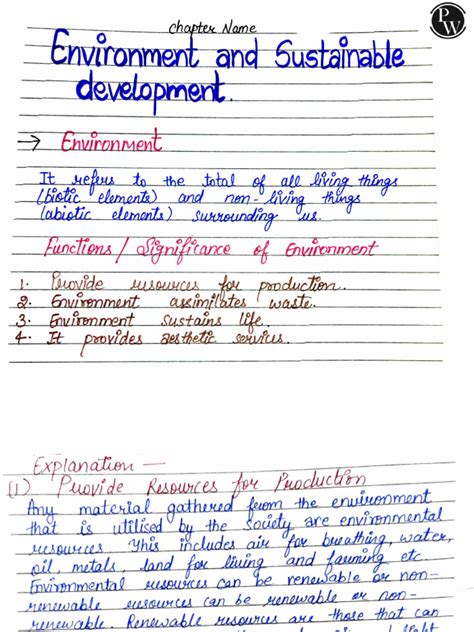 Chapter Name
PW
Environment and Sustainable
development.
→ Environment
It refers to the total of all living things
(biotic elements) and non-living things
(abiotic elements) surrounding us.
Functions / Significance of Environment
1. Provide resources for production.
2. Environment assimilates waste.
3. Environment sustains life.
4. It provides aesthetic services.
Explanation —
(1) Provide Resources for Production
Any material gathered from the environment
that is utilised by the society are environmental
resources. This includes air for breathing, water,
oil, metals, land for living and farming etc.
Environmental resources can be renewable or non-
renewable resources can be renewable or non-
renewable. Renewable resources are those that can